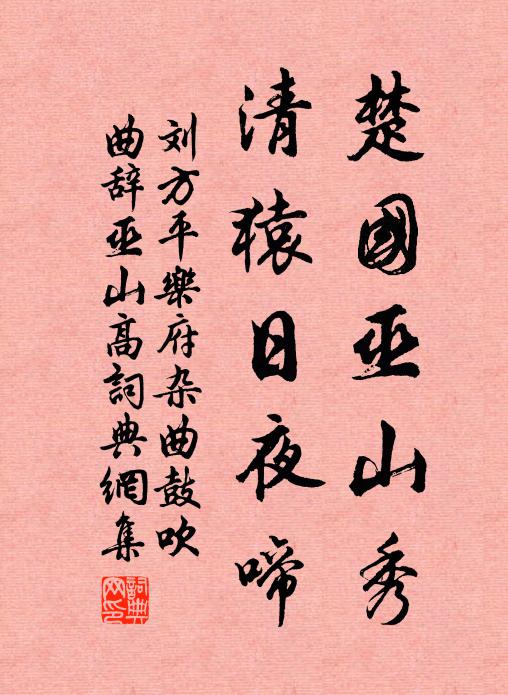 楚國巫山秀
清猿日夜啼
刘方平樂府杂曲鼓吹
曲辞巫山高詞典網集
詞典
网印